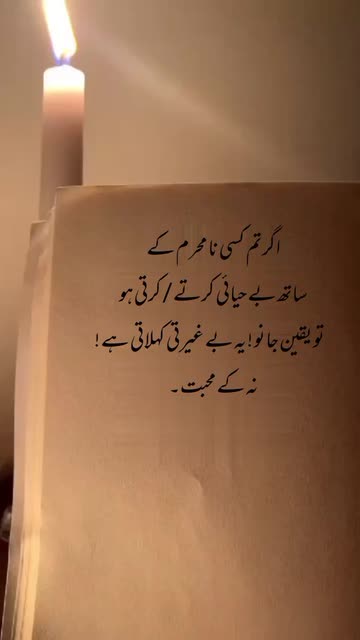 اگر تم کسی نامحرم کے
ساتھ بے حیائی کرتے / کرتی ہو
تو یقین جانو! یہ بے غیرتی کہلاتی ہے!
نہ کے محبت۔